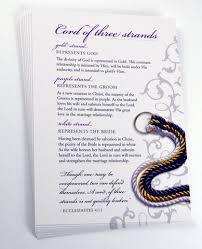 Cord of three strands
gold strand...
REPRESENTS GOD
The divinity of God is represented in Gold. This covenant
relationship initiated by Him, will be under His
authority and
glorified in Him.
purple strand...
REPRESENTS THE GROOM
As a new creation in Christ, the majesty of the
Groom is represented in purple. As the husband
loves his wife and submits himself to the
Lord, in turn the Lord will
marriage relationship.
white strand...
REPRESENTS THE BRIDE
Having been cleansed by salvation in Christ, the
purity of the Bride is represented in white. As the
wife honors her husband and submits herself to
the Lord, the Lord in turn will
marriage relationship.
"Though one may be
overpowered, two can defend
themselves. A cord of three strands
is not quickly broken"
~ECCLESIASTES 4:12